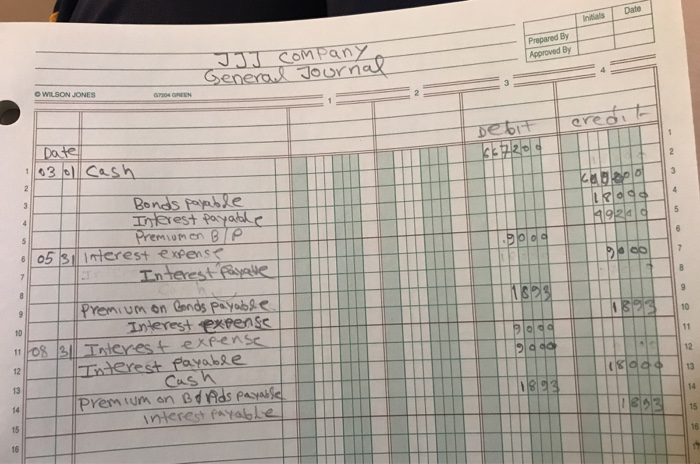 Initials Date
Prepared By
Approved By
JJJ Company
General Journal
© WILSON JONES G7204 GREEN
1 2 3 4
Debit credit
Date
03 01 Cash 667200
Bonds payable 600000
Interest payable 18000
Premium on B/P 49200
05 31 Interest expense 9000
Interest Payable 9000
Premium on Bonds Payable 1893
Interest expense 1893
08 31 Interest expense 9000
Interest payable 9000
Cash 18000
Premium on Bonds payable 1893
interest payable 1893